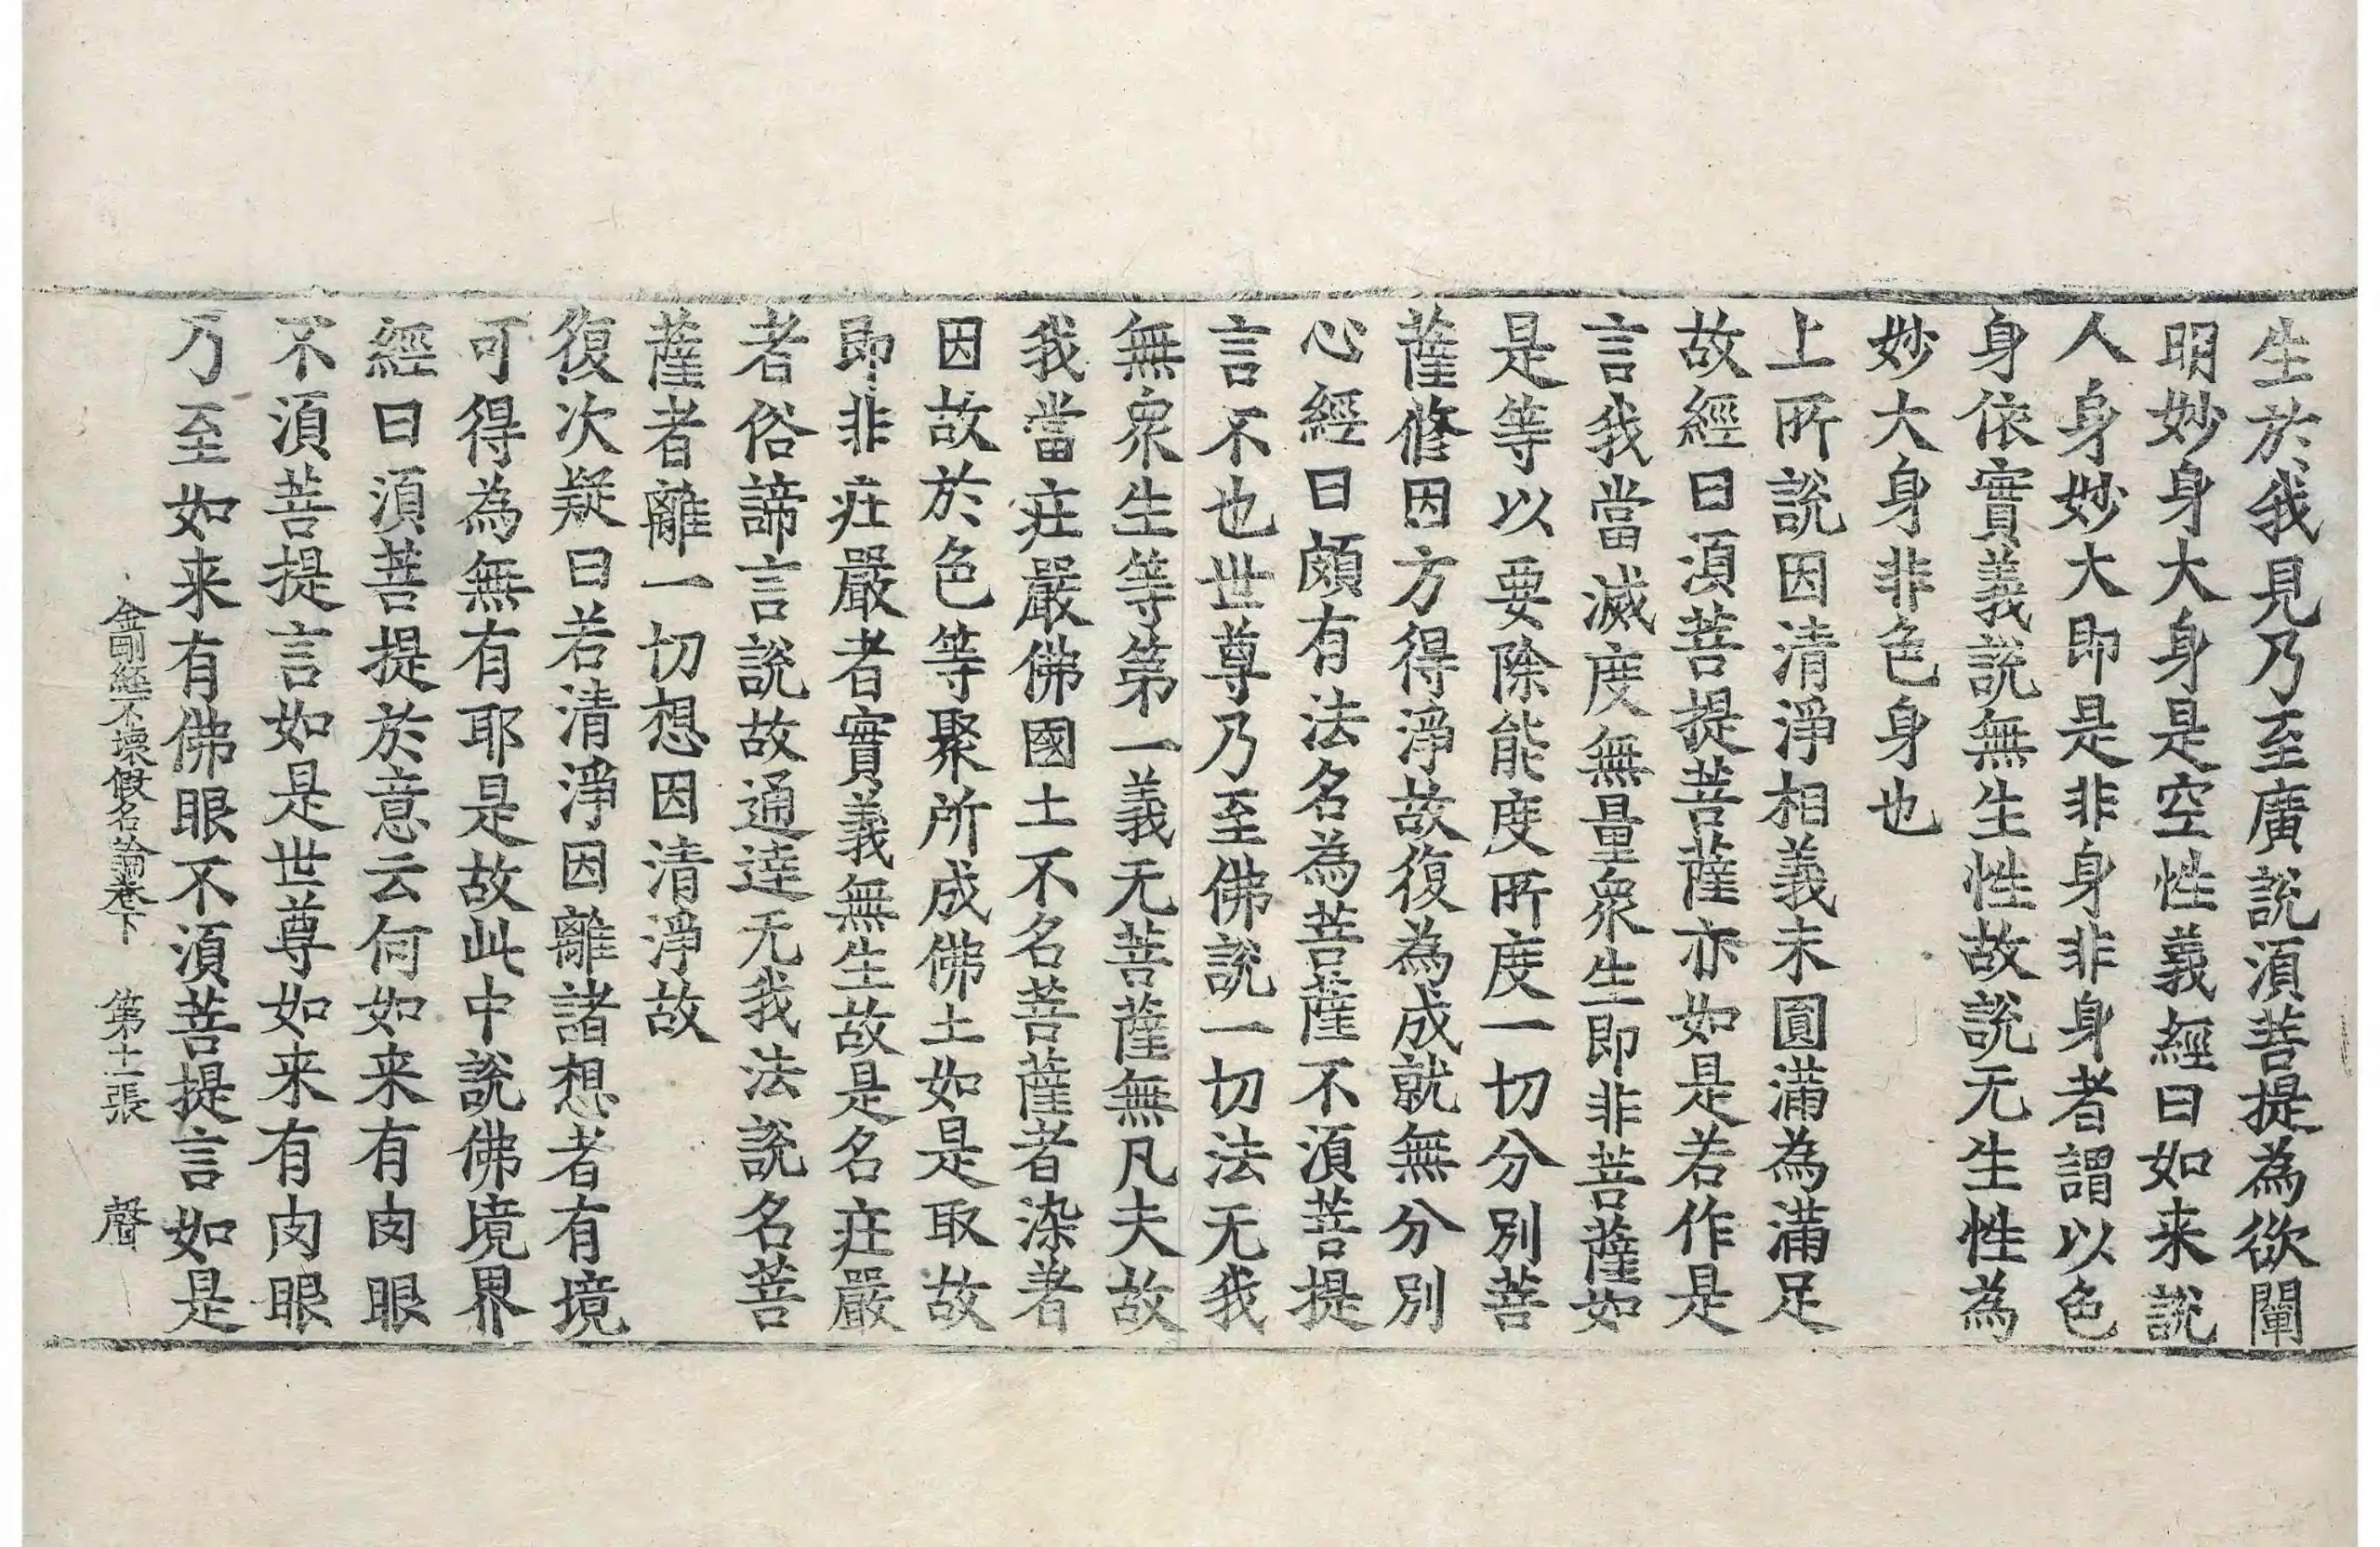 生於我見乃至廣說湏菩提為欲闡
明妙身大身是空性義經曰如来說
人身妙大即是非身非身者謂以色
身依實義說無生性故說无生性為
妙大身非色身也
上所說因清淨相義未圓滿為滿足
故經曰湏菩提菩薩亦如是若作是
言我當滅度無量衆生即非菩薩如
是等以要除能度所度一切分別菩
薩修因方得淨故復為成就無分別
心經曰頗有法名為菩薩不湏菩提
言不也世尊乃至佛說一切法无我
無衆生等第一義无菩薩無凡夫故
我當莊嚴佛國土不名菩薩者染著
因故於色等聚所成佛土如是取故
即非莊嚴者實義無生故是名莊嚴
者俗諦言說故通達无我法說名菩
薩者離一切想因清淨故
復次疑曰若清淨因離諸想者有境
可得為無有耶是故此中說佛境界
經曰湏菩提於意云何如来有肉眼
不湏菩提言如是世尊如来有肉眼
乃至如来有佛眼不湏菩提言如是
金剛經不壞假名論卷下　第十一張　聲